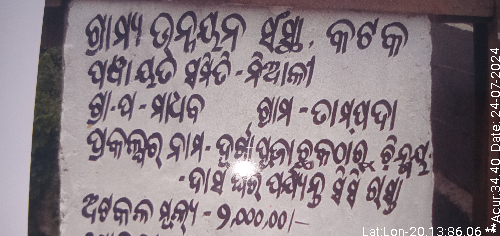 ଗ୍ରାମ୍ୟ ଉନ୍ନୟନ ସଂସ୍ଥା, କଟକ
ପଞ୍ଚାୟତ ସମିତି - ନିଆଳୀ
ଗ୍ରା-ପ-ମାଧବ ଗ୍ରାମ-ତାମ୍ପଦା
ପ୍ରକଳ୍ପର ନାମ-ଦୁର୍ଗାପୂଜା ଛକଠାରୁ ଚିନ୍ମୟ
-ଦାସ ଘର ପର୍ଯ୍ୟନ୍ତ ସିସି ରାସ୍ତା
ଅଟକଳ ମୂଲ୍ୟ - ୨,୦୦୦,୦୦/-
Lat:Lon-20.13:86.06
**Acur:34.40 Date: 24-07-2024